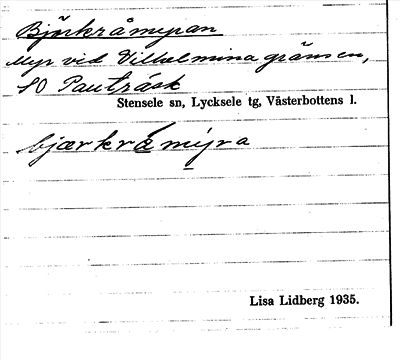 Björkråmyran
Myr vid Vilhelmina gränsen,
SO Pauträsk
Stensele sn, Lycksele tg, Västerbottens l.
bjærkrå mýra
Lisa Lidberg 1935.